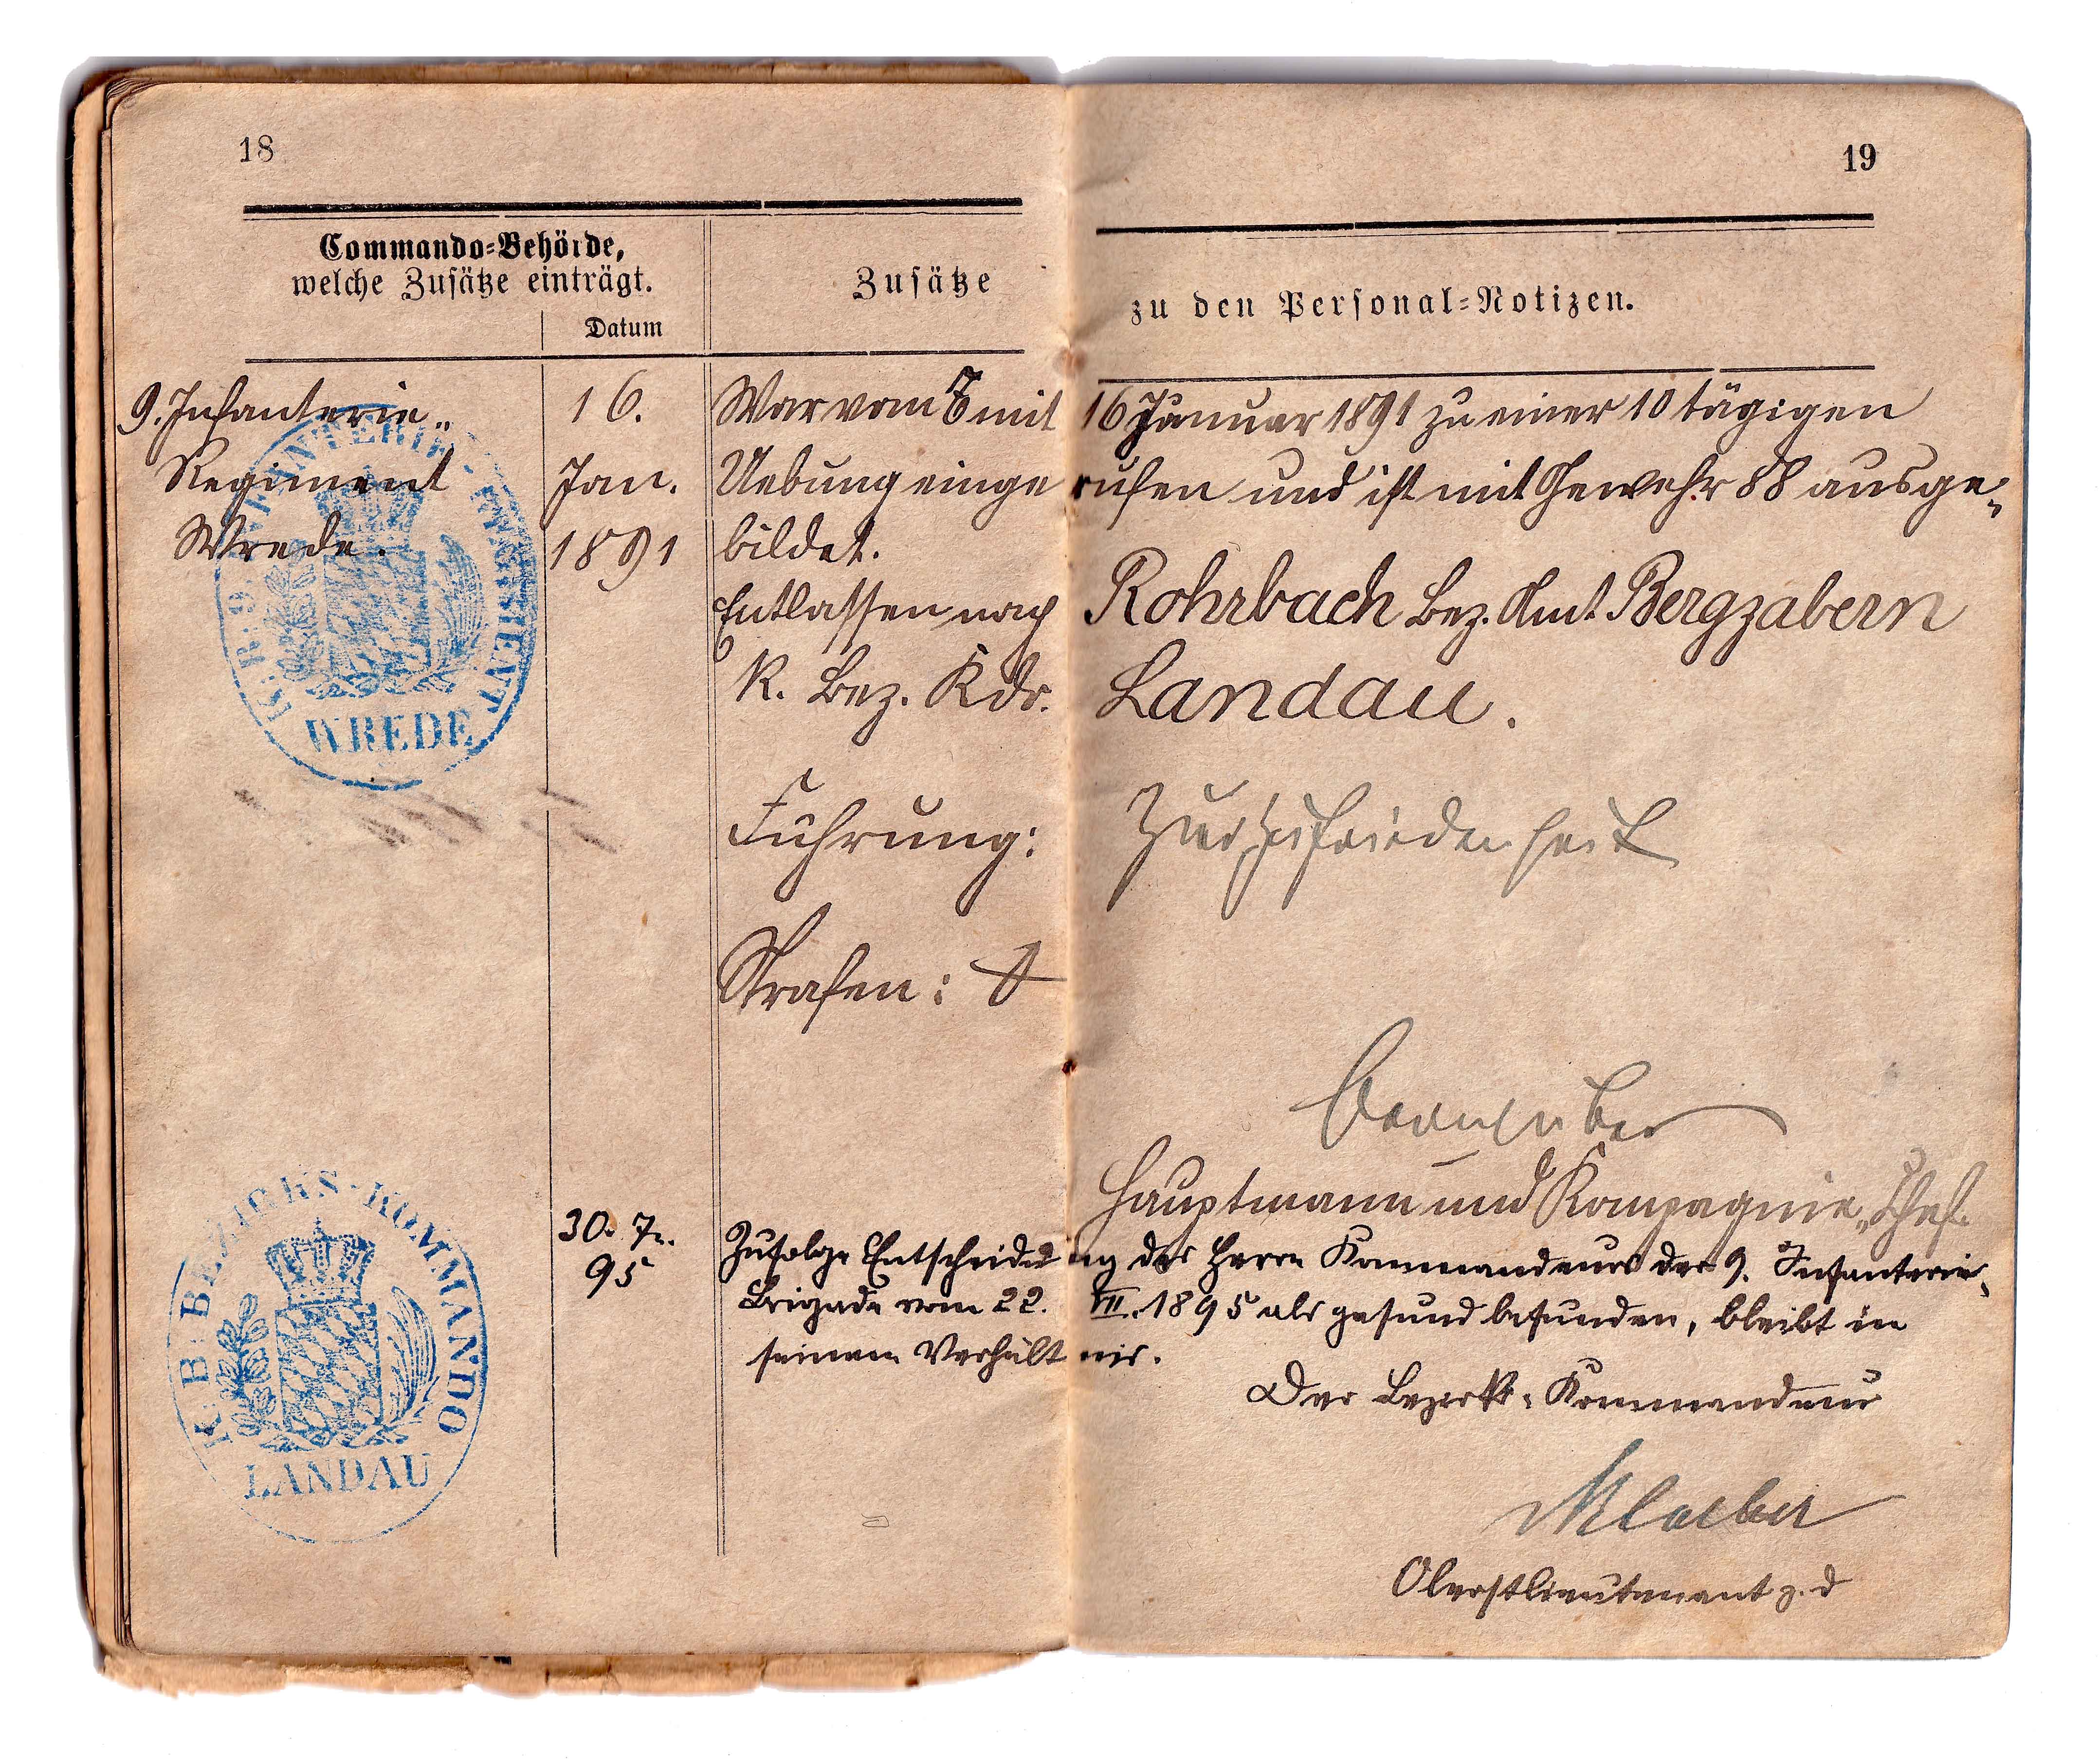 18
19
Commando=Behörde,
welche Zusätze einträgt.
Datum
Zusätze zu den Personal=Notizen.
9. Infanterie-
Regiment
Wrede.
16.
Jan.
1891
War vom 7 mit 16 Januar 1891 zu einer 10 tägigen
Uebung einge rufen und ist mit Gewehr 88 ausge-
bildet.
Entlassen nach Rohrbach Bez. Amt Bergzabern
K. Bez. Kdo. Landau.
Führung: Zur Zufriedenheit
Strafen:
Hauptmann und Kompagnie-Chef.
30. 7.
95
Zufolge Entscheidung des Herrn Kommandeurs der 9. Infanterie-
Brigade vom 22. VII. 1895 als gesund befunden, bleibt in
seinem Verhältnis.
Der Bezirks-Kommandeur
Oberstlieutenant z. D
K. B. 9. INFANTERIE-REGIMENT
WREDE
K. B. BEZIRKS-KOMMANDO
LANDAU